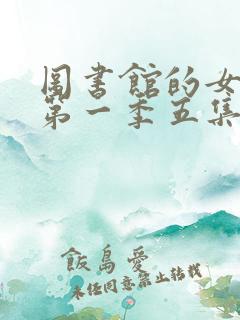 圖書館的女
第一季五集
飯島愛
未任同意禁止轉載